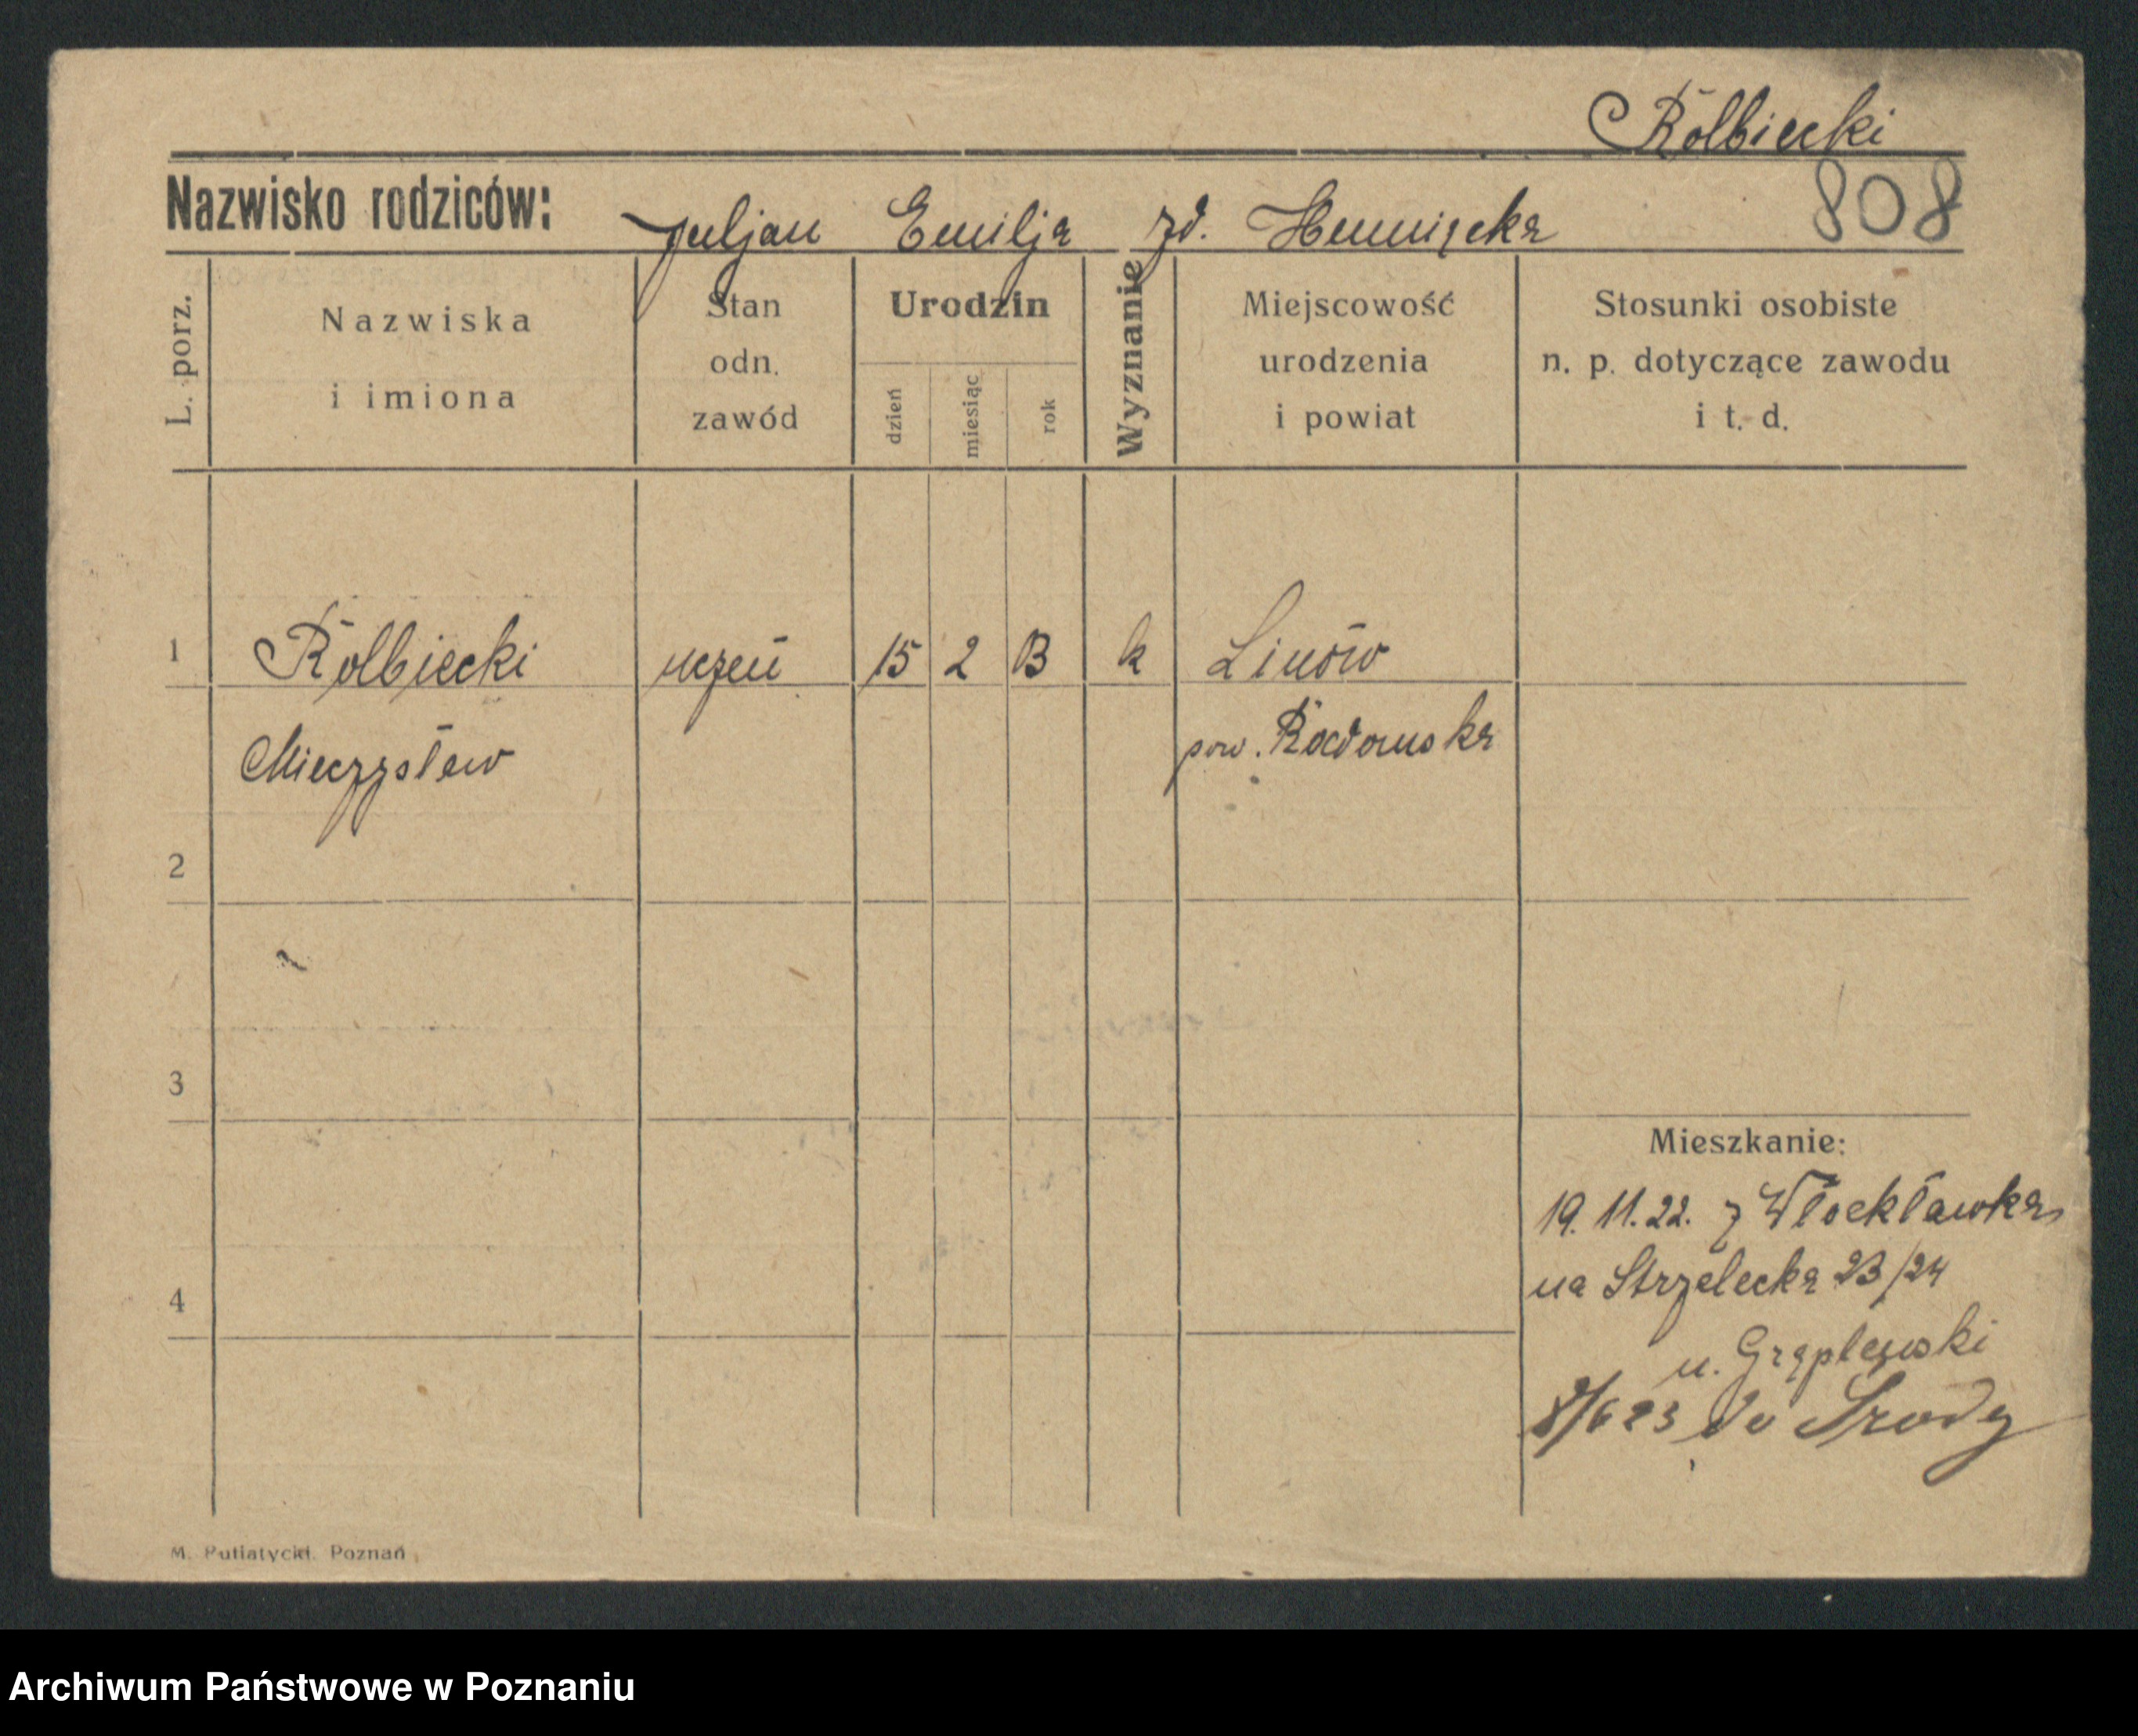 Rolbiecki
808
Nazwisko rodziców: Juljan Emilja zd.
L. porz.
Nazwiska i imiona
Stan odn. zawód
Urodzin
dzień miesiąc rok
Wyznanie
Miejscowość urodzenia i powiat
Stosunki osobiste n. p. dotyczące zawodu i t. d.
1 Rolbiecki uczeń 15 2 13 k Linów
Mieczysław pow. Radomska
2
3
Mieszkanie:
19. 11. 22. z Włocławka
na Strzelecka 23/24
4
u.
8/6 23 do Środy
M. Putiatycki. Poznań
Archiwum Państwowe w Poznaniu